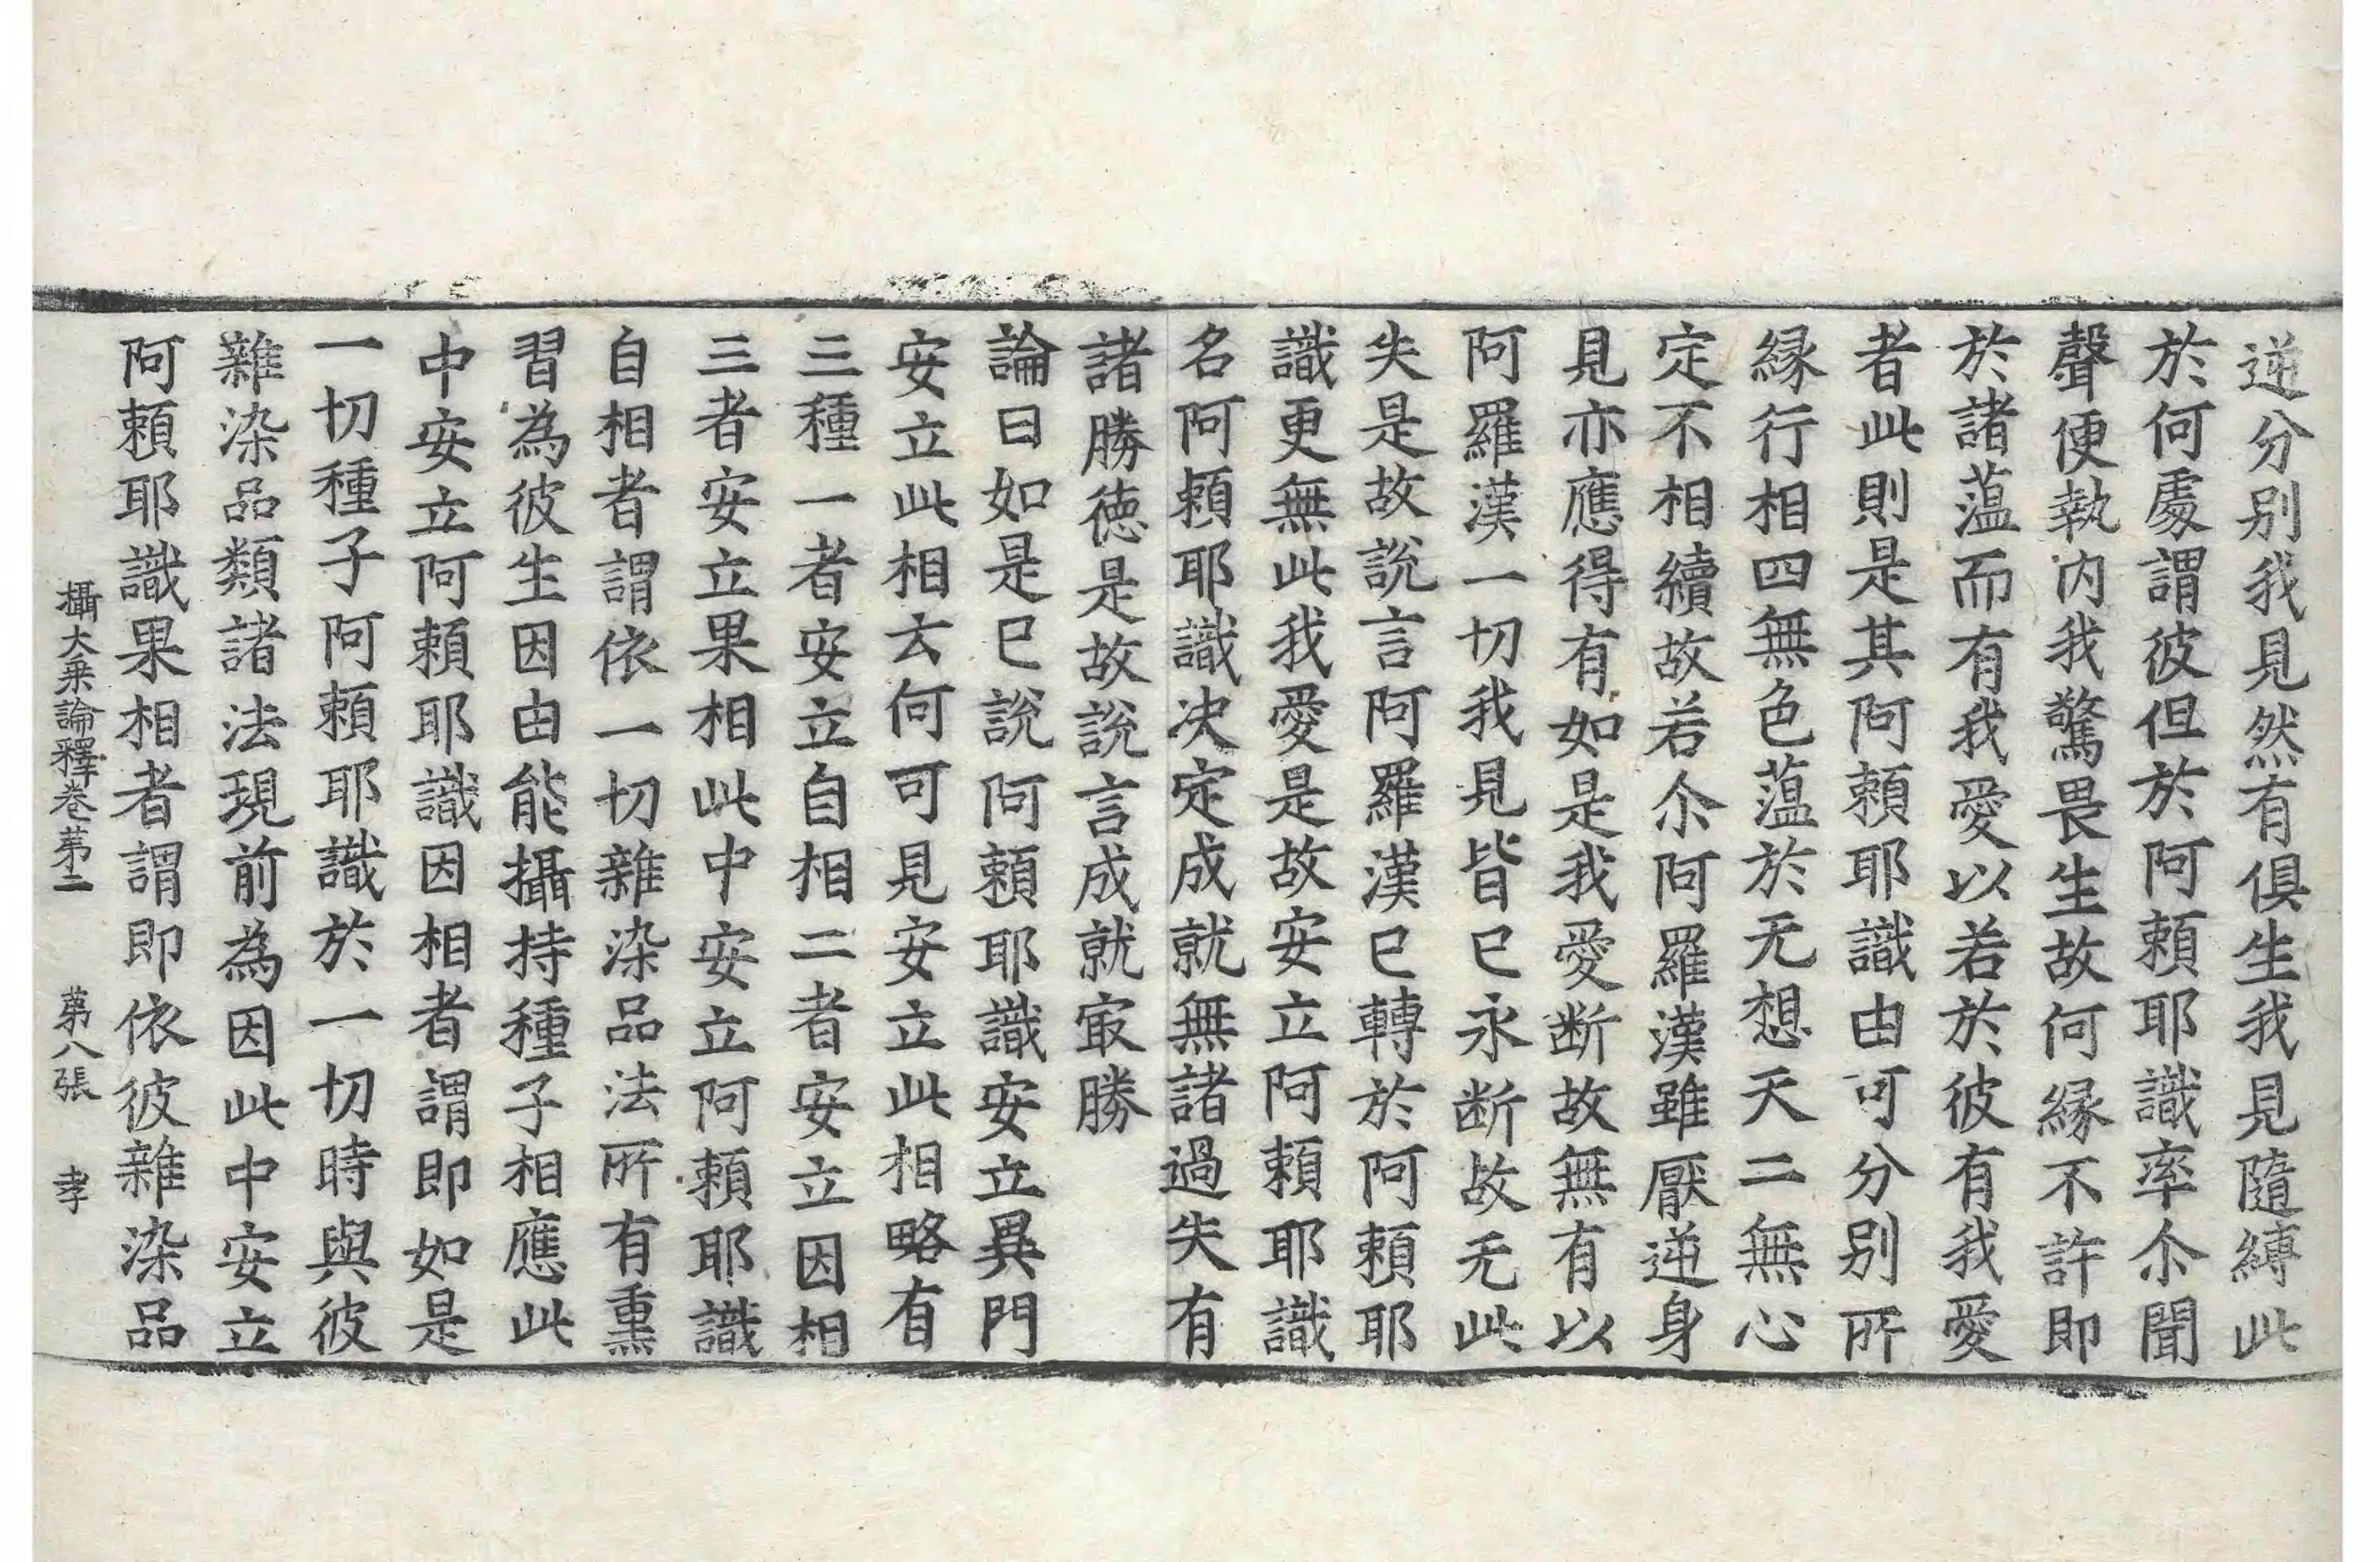 逆分別我見然有俱生我見隨縛此
於何處謂彼但於阿賴耶識率尒聞
聲便執內我驚畏生故何縁不許即
於諸薀而有我愛以若於彼有我愛
者此則是其阿賴耶識由可分別所
縁行相四無色薀於无想天二無心
定不相續故若尒阿羅漢雖厭逆身
見亦應得有如是我愛断故無有以
阿羅漢一切我見皆已永断故无此
失是故說言阿羅漢已轉於阿賴耶
識更無此我愛是故安立阿賴耶識
名阿賴耶識決定成就無諸過失有
諸勝徳是故說言成就㝡勝
論曰如是已說阿賴耶識安立異門
安立此相云何可見安立此相略有
三種一者安立自相二者安立因相
三者安立果相此中安立阿賴耶識
自相者謂依一切雜染品法所有熏
習為彼生因由能攝持種子相應此
中安立阿賴耶識因相者謂即如是
一切種子阿賴耶識於一切時與彼
雜染品類諸法現前為因此中安立
阿賴耶識果相者謂即依彼雜染品
攝大乗論釋卷第二 第八張 孝